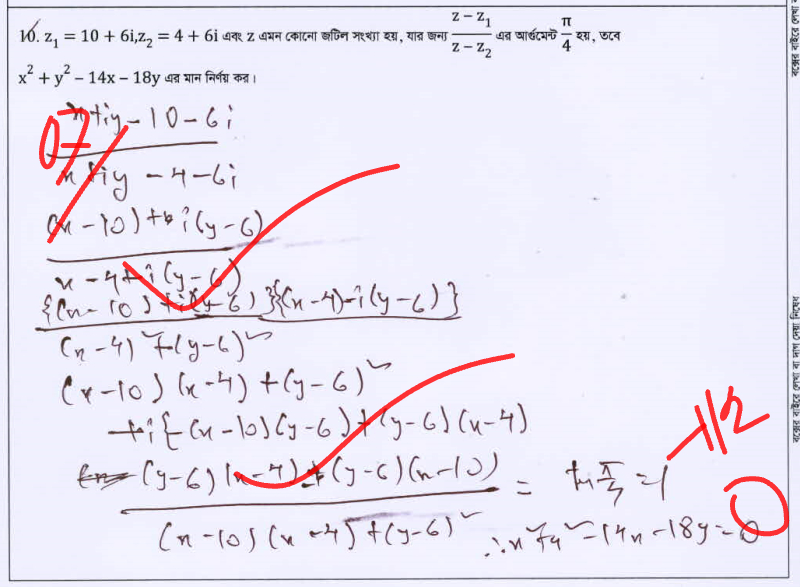 10. z₁ = 10 + 6i, z₂ = 4 + 6i এবং z এমন কোনো জটিল সংখ্যা হয়, যার জন্য (z − z₁)/(z − z₂) এর আর্গুমেন্ট π/4 হয়, তবে
x² + y² − 14x − 18y এর মান নির্ণয় কর।
x+iy-10-6i
07
x+iy-4-6i
(x-10)+i(y-6)
x-4+i(y-6)
{(x-10)+i(y-6)}{(x-4)-i(y-6)}
(x-4)²+(y-6)²
(x-10)(x-4)+(y-6)²
+i{-(x-10)(y-6)+(y-6)(x-4)
(y-6)(x-4)+(y-6)(x-10) = tan π/4 = 1
-1/2
(x-10)(x-4)+(y-6)²
∴x²+y²-14x-18y=0
বক্সের বাইরে লেখা বা দাগ দেয়া নিষেধ